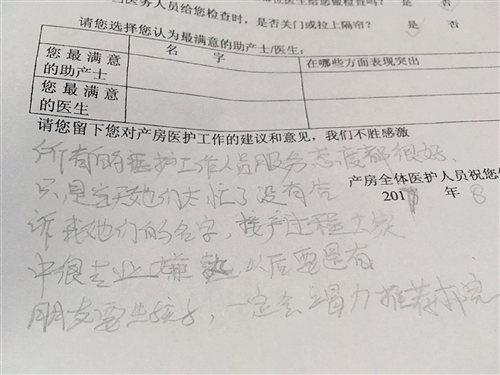 医务人员给您检查时，是否关门或拉上隔帘？ 是 否
请您选择您认为最满意的助产士/医生：
名 字 在哪些方面表现突出
您最满意的助产士
您最满意的医生
请您留下您对产房医护工作的建议和意见，我们不胜感激
所有的医护工作人员服务态度都很好、
只是当天她们太忙了没有告
产房全体医护人员祝您
诉我她们的名字，接产过程大家
2017 年 8
中很专业 嫌熟 以后要是有
朋友要生孩子，一定会竭力推荐我院